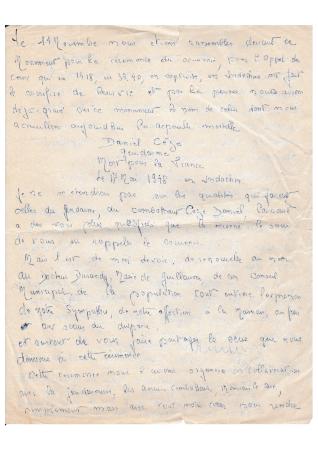 Le 11 Novembre nous étions rassemblés devant ce
Monument pour la cérémonie du souvenir, pour l'appel de
ceux qui en 1918, en 39,40, en en Indochine ont fait
le sacrifice de leur vie et
déjà gravé sur ce monument le nom de celui dont nous
aujourd'hui la dépouille mortelle
Daniel Cèze
Gendarme
Mort pour la France
le 17 Mai 1948 en Indochine
Je ne m'étendrai pas sur les qualités qui furent
celles du Gendarme, du combattant Cèze Daniel, laissant
à des voix plus que la mienne le soin
de vous en rappeler le souvenir.
Mais il est de mon devoir, de renouveler au nom
du Docteur Maire de Guillaumes de son Conseil
Municipal, de la population tout entière l'expression
de notre sympathie, de notre affection à la Maman, au
aux sœurs du disparu
et surtout de vous faire partager le que nous
donnons à cette cérémonie
Cette cérémonie nous l'avons organisée en collaboration
avec la gendarmerie, les anciens combattants
simplement mais avec tout notre cœur, pour rendre